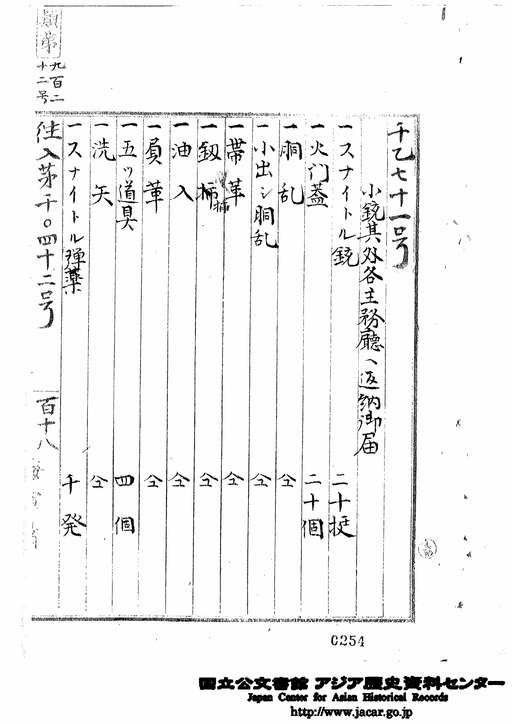 千乙七十一号
小銃其外各主務廳ヘ返納御届
一スナイトル銃 二十挺
一火门蓋 二十個
一胴乱 仝
一小出シ胴乱 仝
一帯革 仝
一釼挿 仝
一油入 仝
一負革 仝
一五ツ道具 四個
一洗矢 仝
一スナイトル弾薬 千発
往入第千〇四十二号 百十八
九百二十二号
0254
国立公文書館 アジア歴史資料センター
Japan Center for Asian Historical Records
http://www.jacar.go.jp